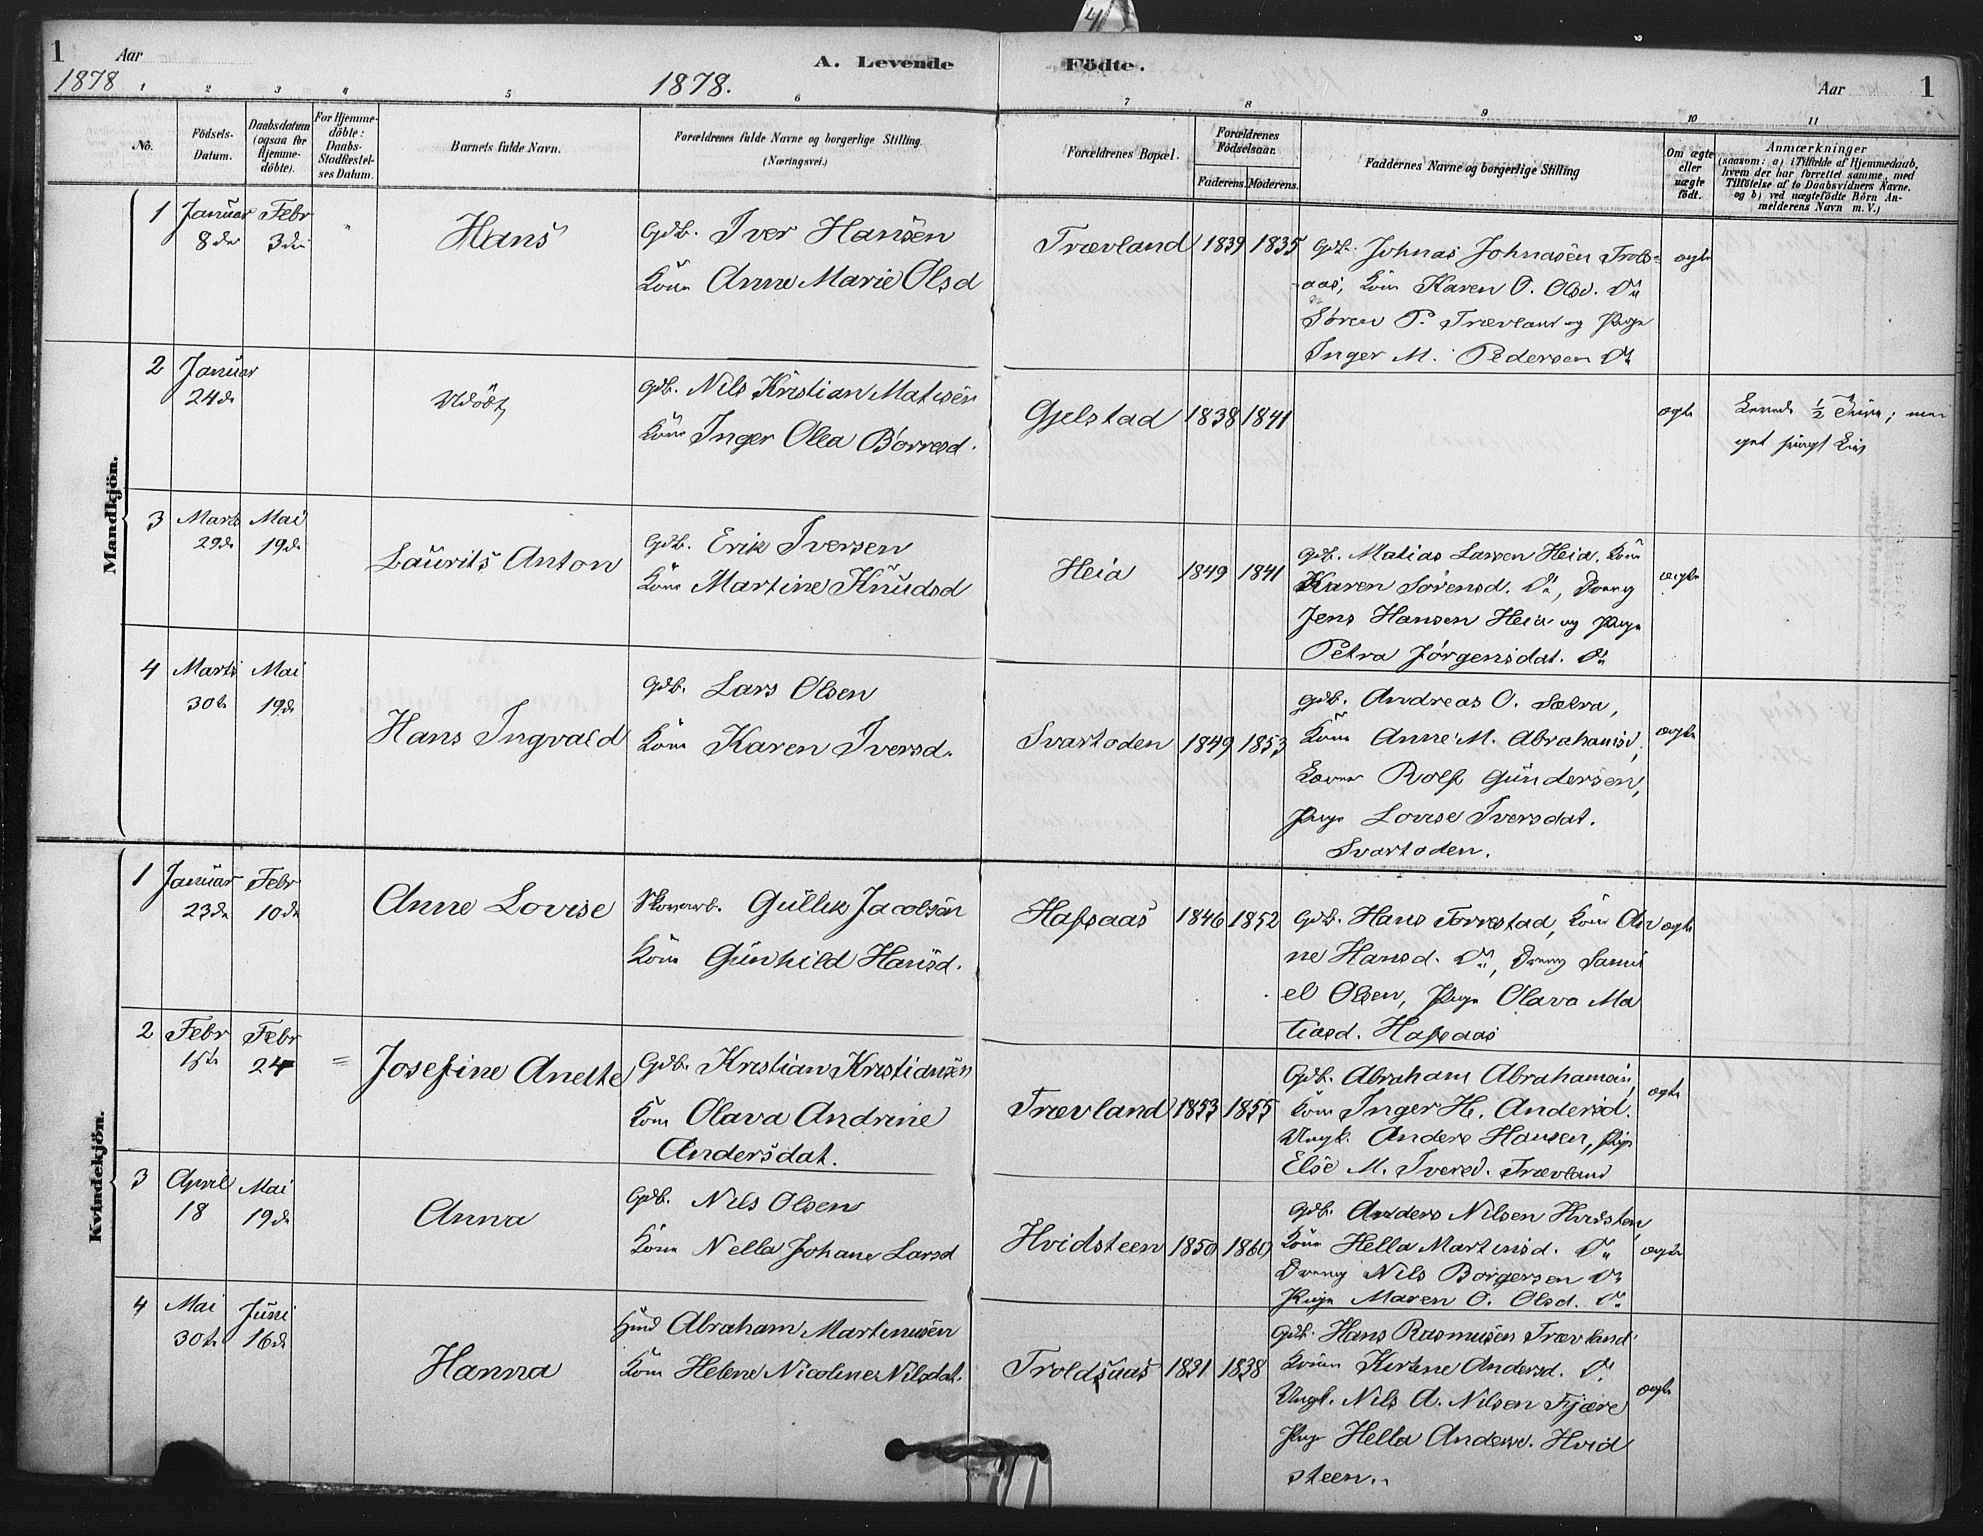 4
1 Aar A. Levende Födte. Aar 1
1878 1878.
1 2 3 4 5 6 7 8 9 10 11
No. Födsels-Datum. Daabsdatum (ogsaa for Hjemme-döbte). For Hjemme-döbte: Daabs-Stadfæstel-ses Datum. Barnets fulde Navn. Forældrenes fulde Navne og borgerlige Stilling. (Næringsvei.) Forældrenes Bopæl. Forældrenes Födselsaar. Faderens. Moderens. Faddernes Navne og borgerlige Stilling Om ægte eller uægte født. Anmærkninger (saasom: a) i Tilfælde af Hjemmedaab, hvem der har forrettet samme, med Tilføielse af to Daabsvidners Navne. og b) ved uægtefödte Börn An-melderens Navn m. V.)
Mandkjön.
1 Januar 8de Febr 3die " Hans
Gdb. Iver Hansen
Kone Anne Marie Olsd
Trævland 1839 1835
Gdb. Johnas Johnasen Trols-
aas, Kone Karen O. Olsd. Do
Søren P. Trævland og Pige
Inger M. Pedersen Do
ægte
2 Januar 24de Udöbt
Gdb. Nils Kristian Matisen
Kone Inger Olea Borresd.
Gjelstad 1838 1841
ægte
Levede ½ Time; me
get svagt Liv
3 Marts 29de Mai 19de Laurits Anton
Gdb. Erik Iversen
Kone Martine Knudsd
Heia 1849 1841
Gdb. Matias Larsen Heia, Kone
Karen Sörensd. Do, Dreng
Jens Hansen Heia og Pige
Petra Jørgensdat. Do
ægte
4 Marts 30te Mai 19de Hans Ingvald
Gdb. Lars Olsen
Kone Karen Iversd.
Svartoden 1849 1853
Gdb. Andreas O. Sælra,
Kone Anne M. Abrahamsd,
Rolf Gundersen,
Pige Lovise Iversdat.
Svartoden.
ægte
Kvindekjön.
1 Januar 23de Febr 10de Anne Lovise
Skovarb. Gullik Jacobsen
Kone Gunhild Hansd.
Hafsaas 1846 1852
Gdb. Hans Torrestad, Kone
ne Hansd. Do, Dreng Samu
el Olsen, Pige Olava Ma
tiasd. Hafsaas
ægte
2 Febr 15de Febr 24 = Josefine Anette
Gdb. Kristian Kristiansen
Kone Olava Andrine
Andersdat.
Trævland 1853 1855
Gdb. Abraham Abrahamsen,
Kone Inger H. Andersd.
Ungk. Anders Hansen, Pige
Else M. Iversd. Trævland
ægte
3 April 18 Mai 19de Anna
Gdb. Nils Olsen
Kone Nella Johane Larsd
Hvidsteen 1850 1860
Gdb. Anders Nilsen Hvidsten,
Kone Hella Martinsd. Do
Dreng Nils Borgersen Do
Pige Maren O. Olsd. Do
ægte
4 Mai 30te Juni 16de Hanna
Abraham Martinusen
Kone Helene Nicoline Nilsdat.
Troldsaas 1831 1838
Gdb. Hans Rasmusen Trævland
Konen Kirtine Andersd. Do
Ungk. Nils A. Nilsen Fjære
Pige Hella Andersd. Hvid
steen.
ægte